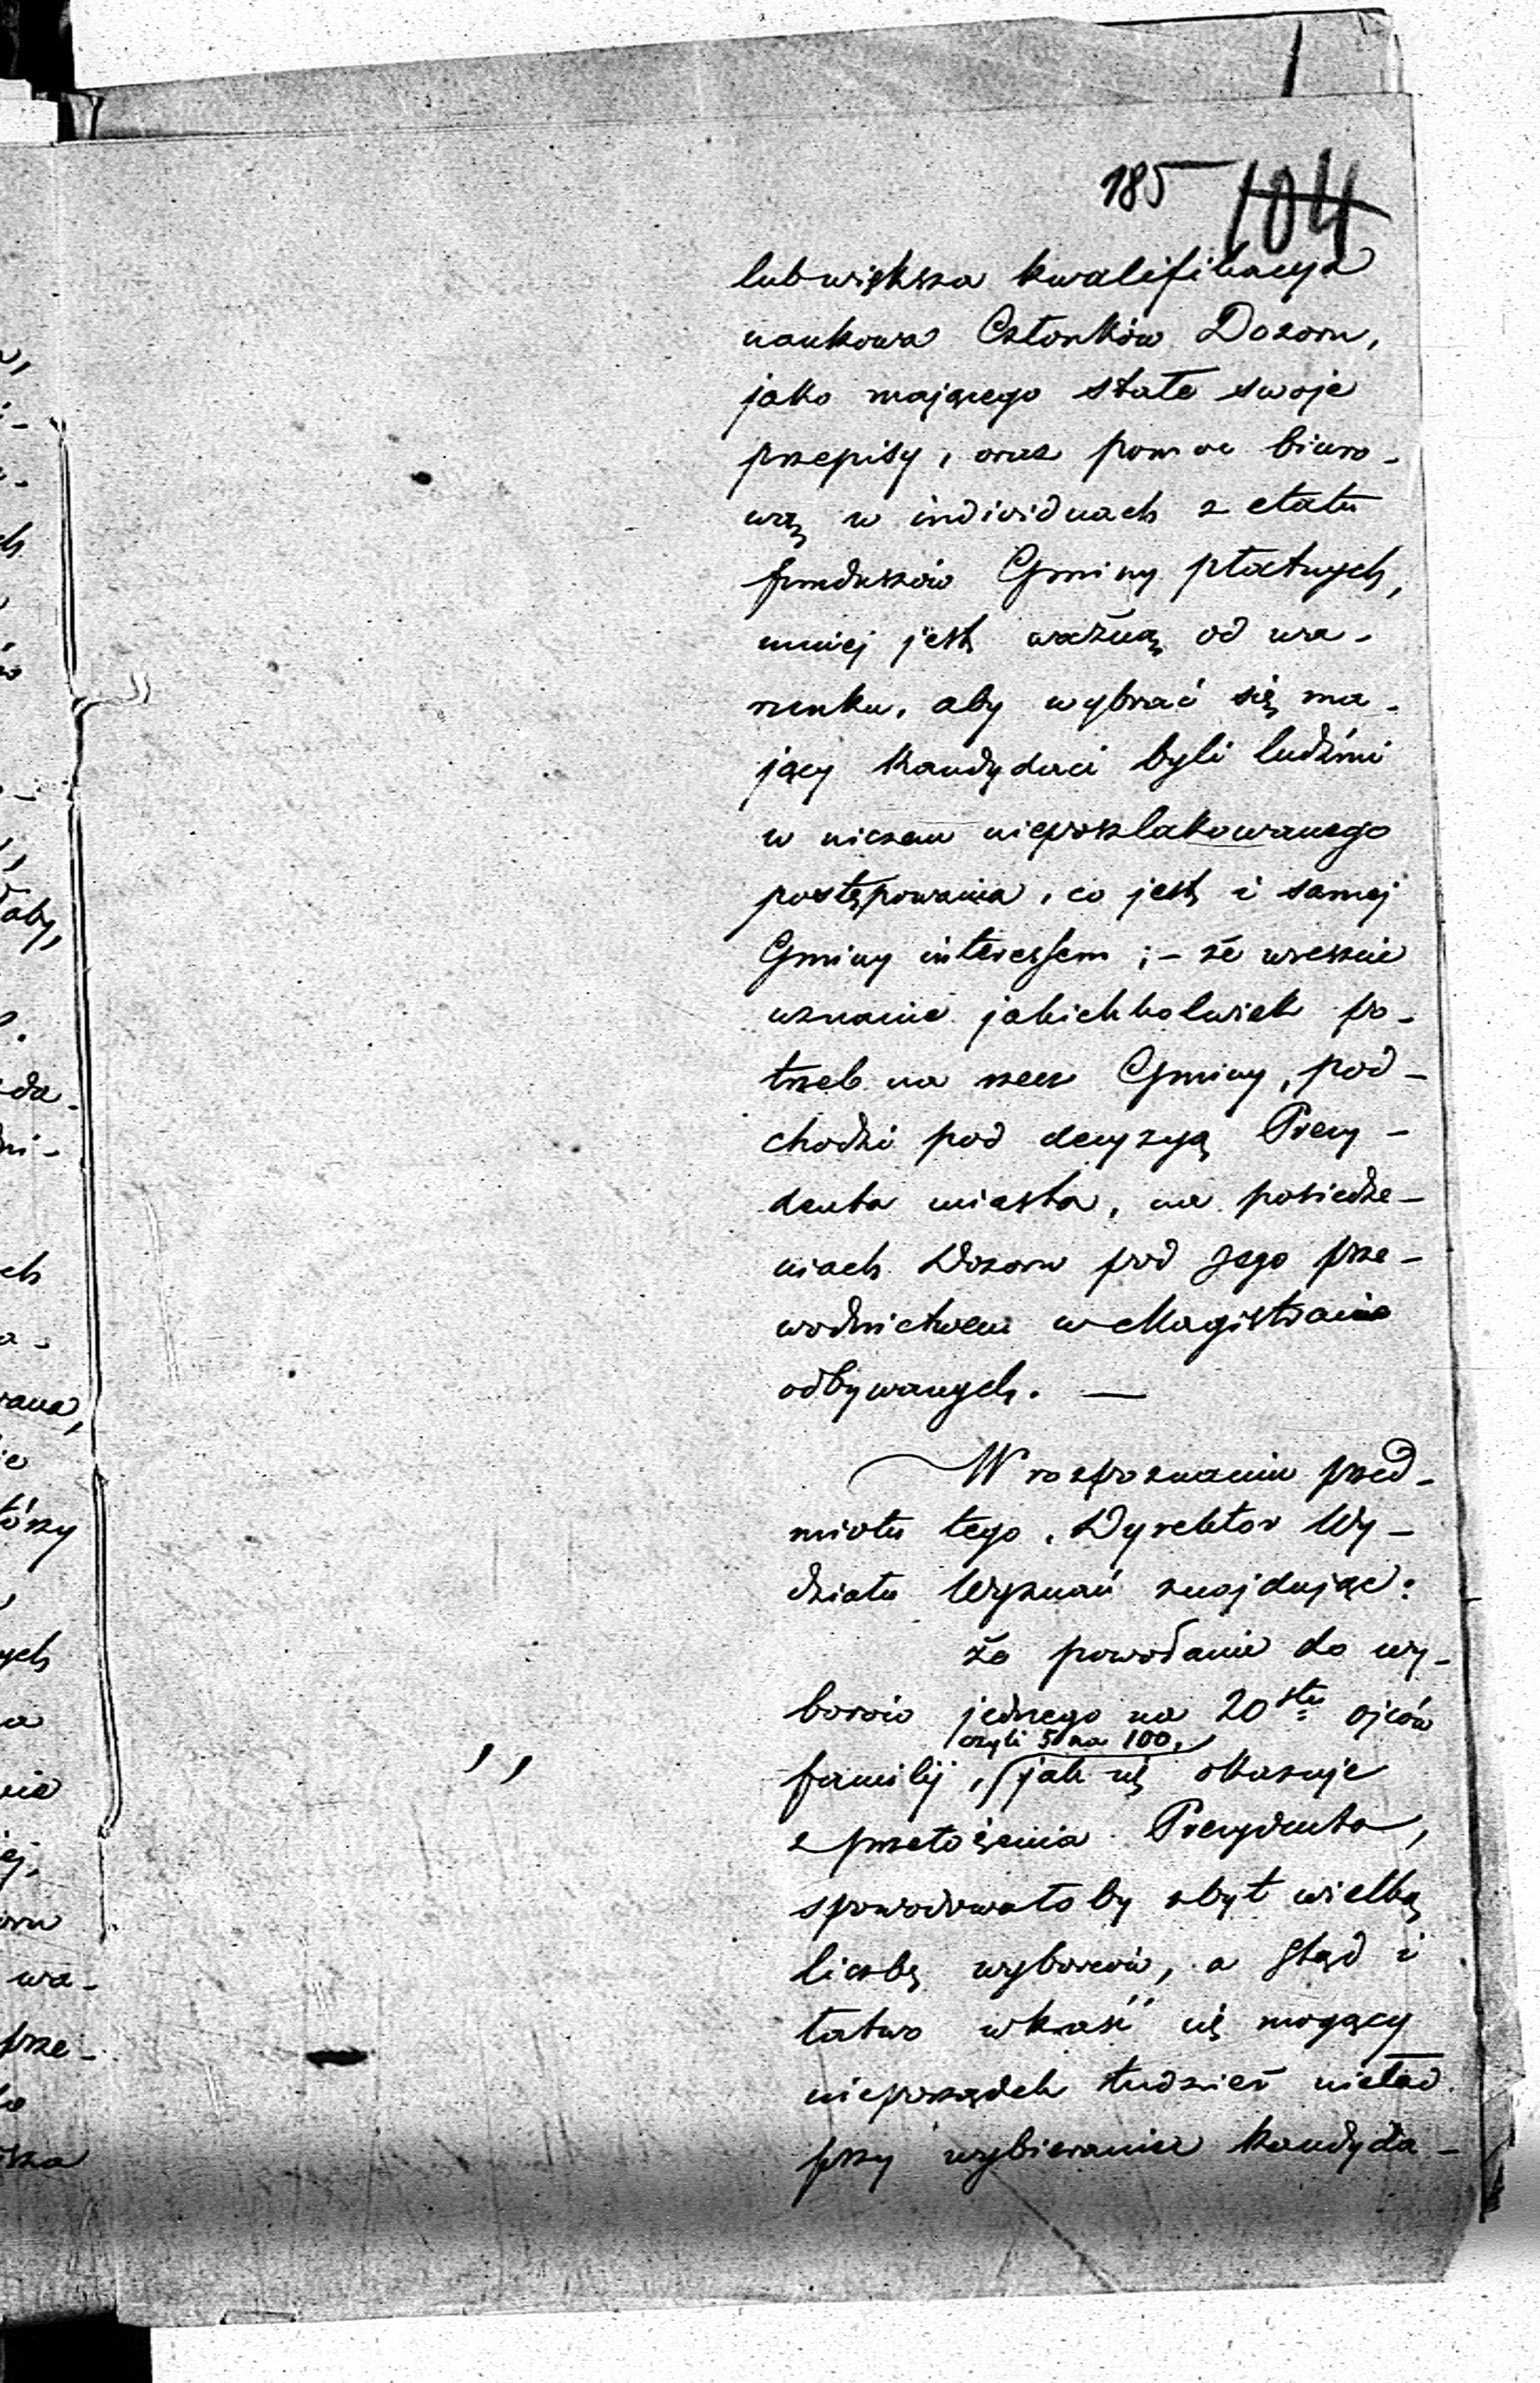 185 104
lub większa kwalifikacya
naukowa Członków Dozoru,
jako mającego stałe swoje
przepisy, oraz pomoc biuro-
wą w individuach z etatu
funduszów Gminy płatnych,
mniej jest ważną od wa-
runku, aby wybrać się ma-
jący kandydaci byli ludźmi
w niczem nieposzlakowanego
postępowania, co jest i samej
Gminy interessem; - że wreszcie
uznanie jakichkolwiek po-
trzeb na rzecz Gminy, pod-
chodzi pod decyzyą Prezy-
denta miasta, na posiedze-
niach Dozoru pod Jego prze-
wodnictwem w Magistracie
odbywanych. —
W rozpoznaniu przed-
miotu tego, Dyrektor Wy-
działu Wyznań znajdując:
że powołanie do wy-
borów jednego na 20stu ojców
czyli 5 na 100,
familij, jak się okazuje
z przełożenia Prezydenta,
spowodowałoby zbyt wielką
liczbę wyborców, a stąd i
łatwo wkraść się mogący
nieporządek tudzież nieład
przy wybieraniu kandyda-